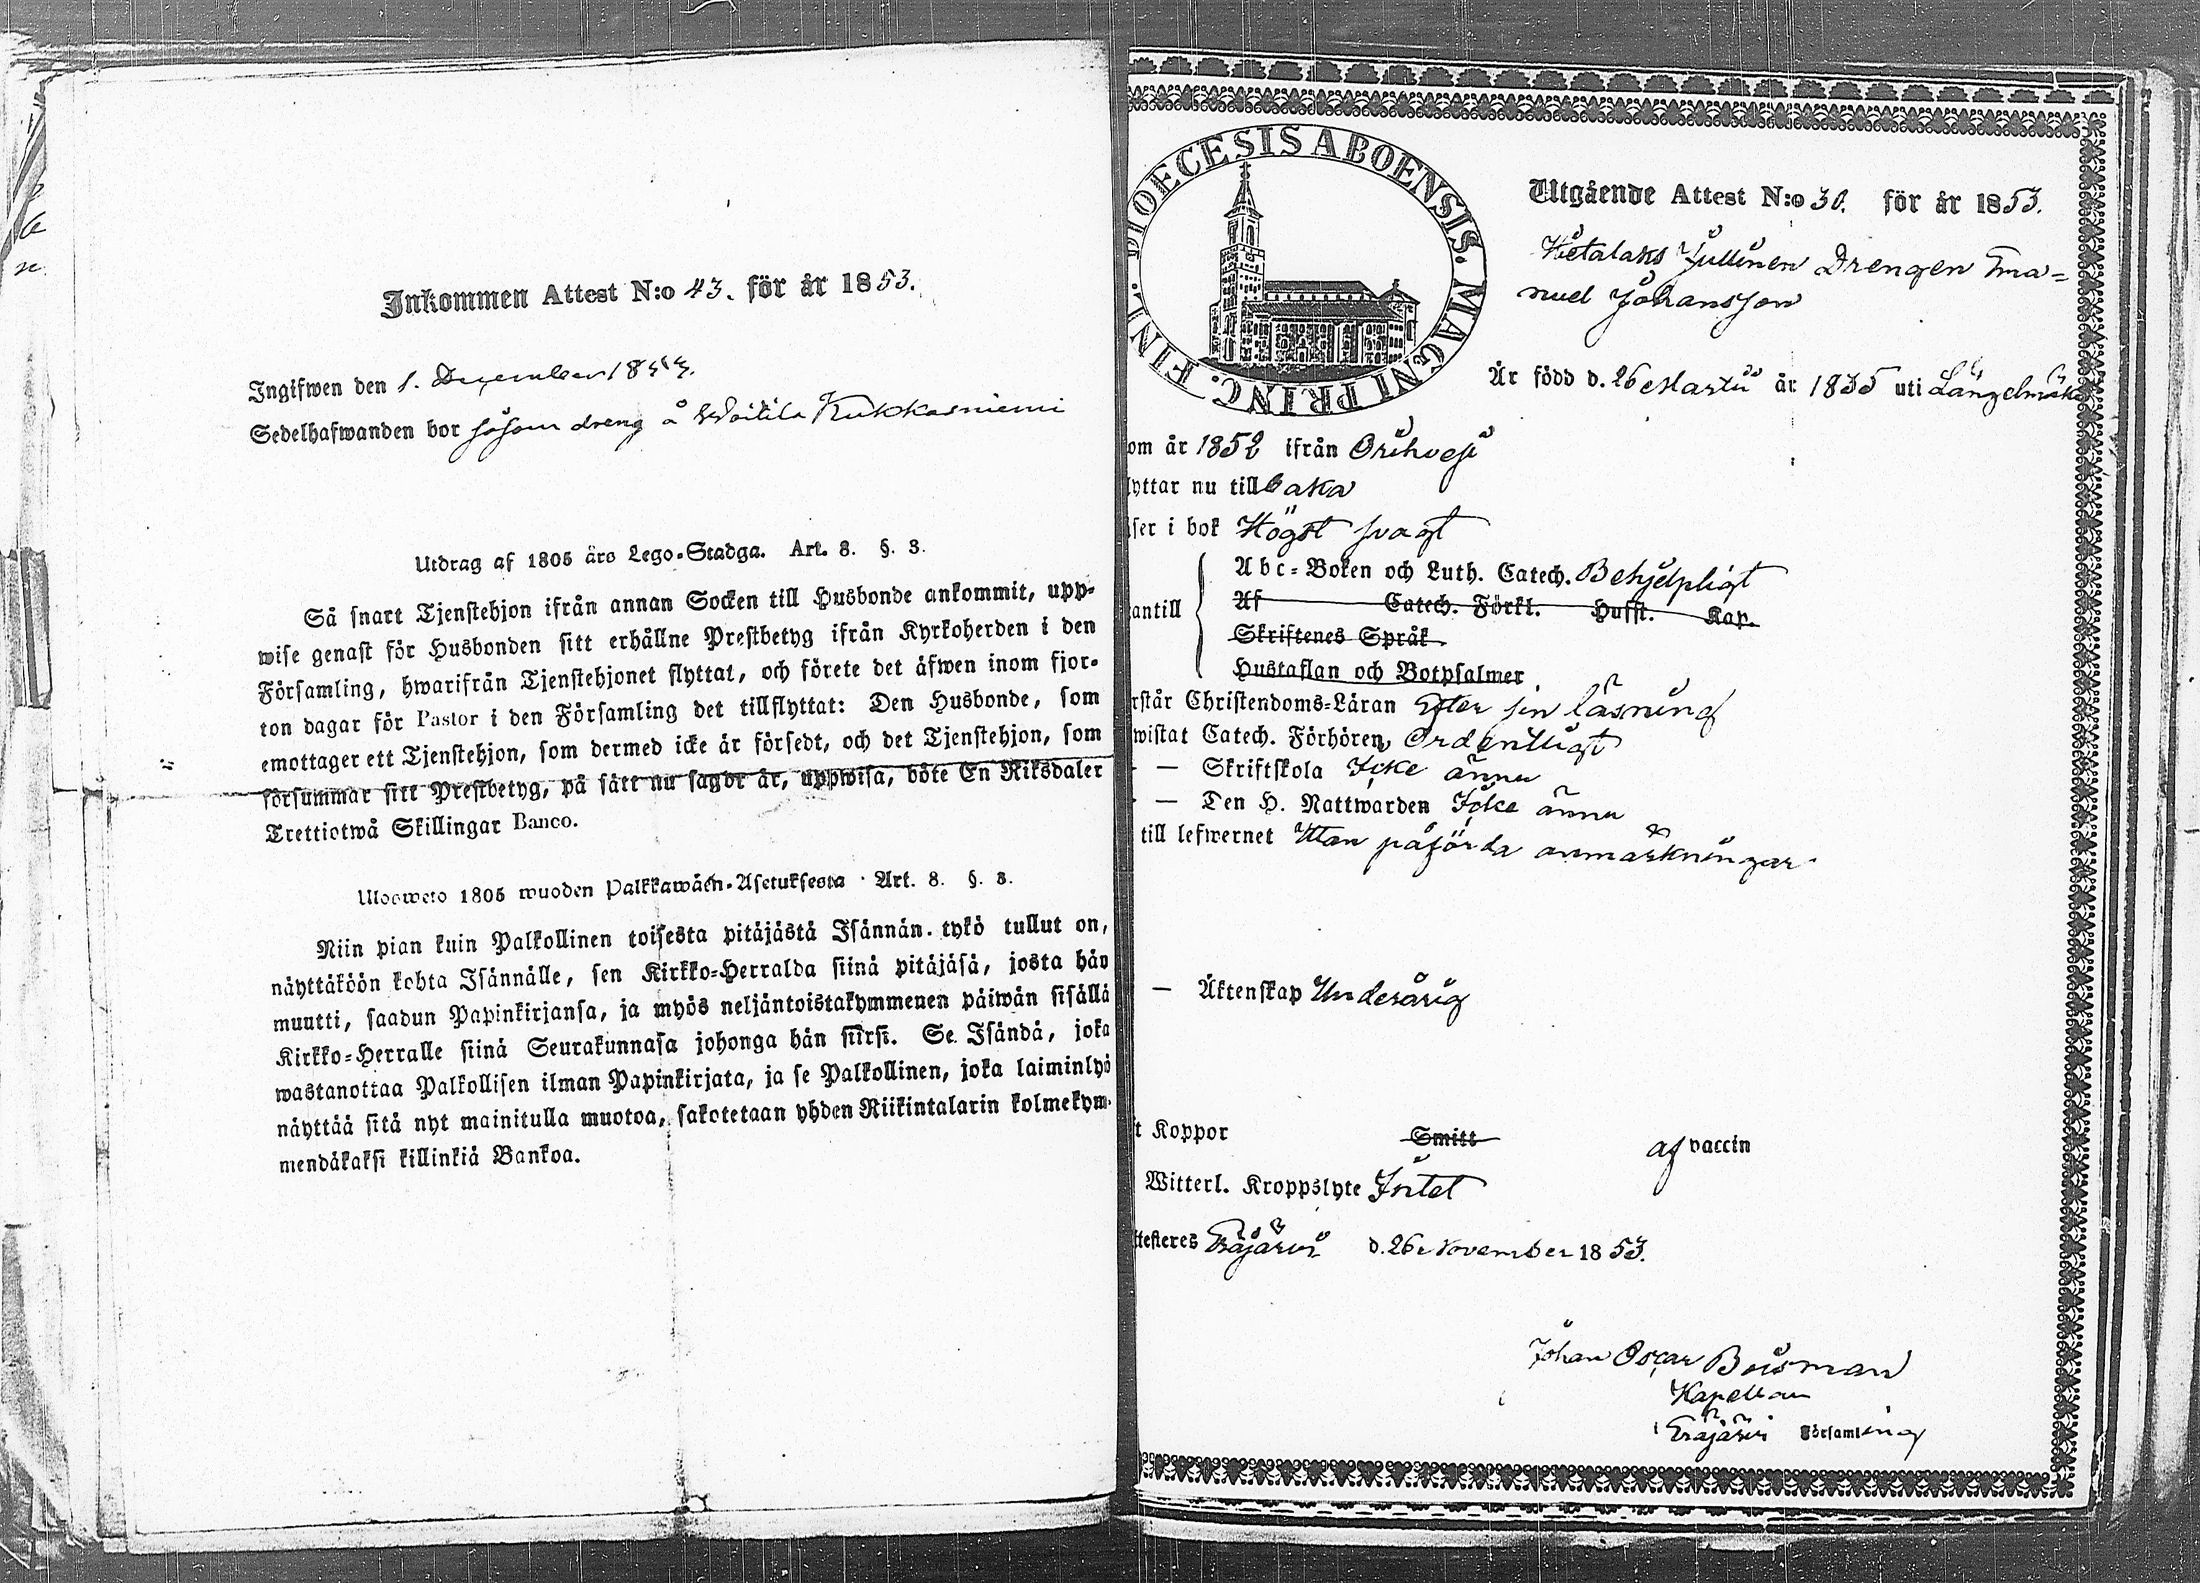 Inkommen Attest N:o 43. för år 1853.
Ingifwen den 1. December 1853.
Sedelhafwanden bor såsom dreng å Woitila Kukkasniemi
Utdrag af 1805 års Lego-Stadga. Art. 8. §. 3.
Så snart Tjenstehjon ifrån annan Socken till Husbonde ankommit, upp-
wise genast för Husbonden sitt erhållne Prestbetyg ifrån Kyrkoherden i den
Församling, hwarifrån Tjenstehjonet flyttat, och förete det äfwen inom fjor-
ton dagar för Pastor i den Församling det tillflyttat: Den Husbonde, som
emottager ett Tjenstehjon, som dermed icke är försedt, och det Tjenstehjon, som
försummar sitt Prestbetyg, på sätt nu sagdt är, uppwisa, böte En Riksdaler
Trettiotwå Skillingar Banco.
Ulosweto 1805 wuoden Palkkawäen-Asetuksesta Art. 8. §. 3.
Niin pian kuin Palkollinen toisesta pitäjästä Isännän tykö tullut on,
näyttäköön kohta Isännälle, sen Kirkko-Herralda siinä pitäjäsä, josta hän
muutti, saadun Papinkirjansa, ja myös neljäntoistakymmenen päiwän sisällä
Kirkko-Herralle siinä Seurakunnasa johonga hän siirsi. Se Isändä, joka
wastanottaa Palkollisen ilman Papinkirjata, ja se Palkollinen, joka laiminlyö
näyttää sitä nyt mainitulla muotoa, sakotetaan yhden Riikintalarin kolmekym-
mendäkaksi killinkiä Bankoa.
DIOECESIS ABOENSIS. MAGNI PRINC. FINL.
Utgående Attest N:o 30. för år 1853.
Hietalaks Jullinen Drengen Ema=
nuel Johansson
Är född d. 26 Martii år 1835 uti Längelmäki
om år 1852 ifrån Orihvesi
lyttar nu tillbaka
äser i bok Högst svagt
Abc-Boken och Luth. Catech. Behjelpligt
antill Af Catech. Förkl. Husst. Kap.
Skriftenes Språk
Hustaflan och Botpsalmer
rstår Christendoms-Läran Efter sin läsning
wistat Catech. Förhören Ordentligt
— Skriftskola Icke ännu
— Den H. Nattwarden Icke ännu
till lefwernet Utan påförda anmärkningar
— Äktenskap Underårig
t Koppor Smitt af vaccin
Witterl. Kroppslyte Intet
ttesteres Eräjärvi d. 26 November 1853.
Johan Oscar Busman
Kapellan
i Eräjärvi Församling